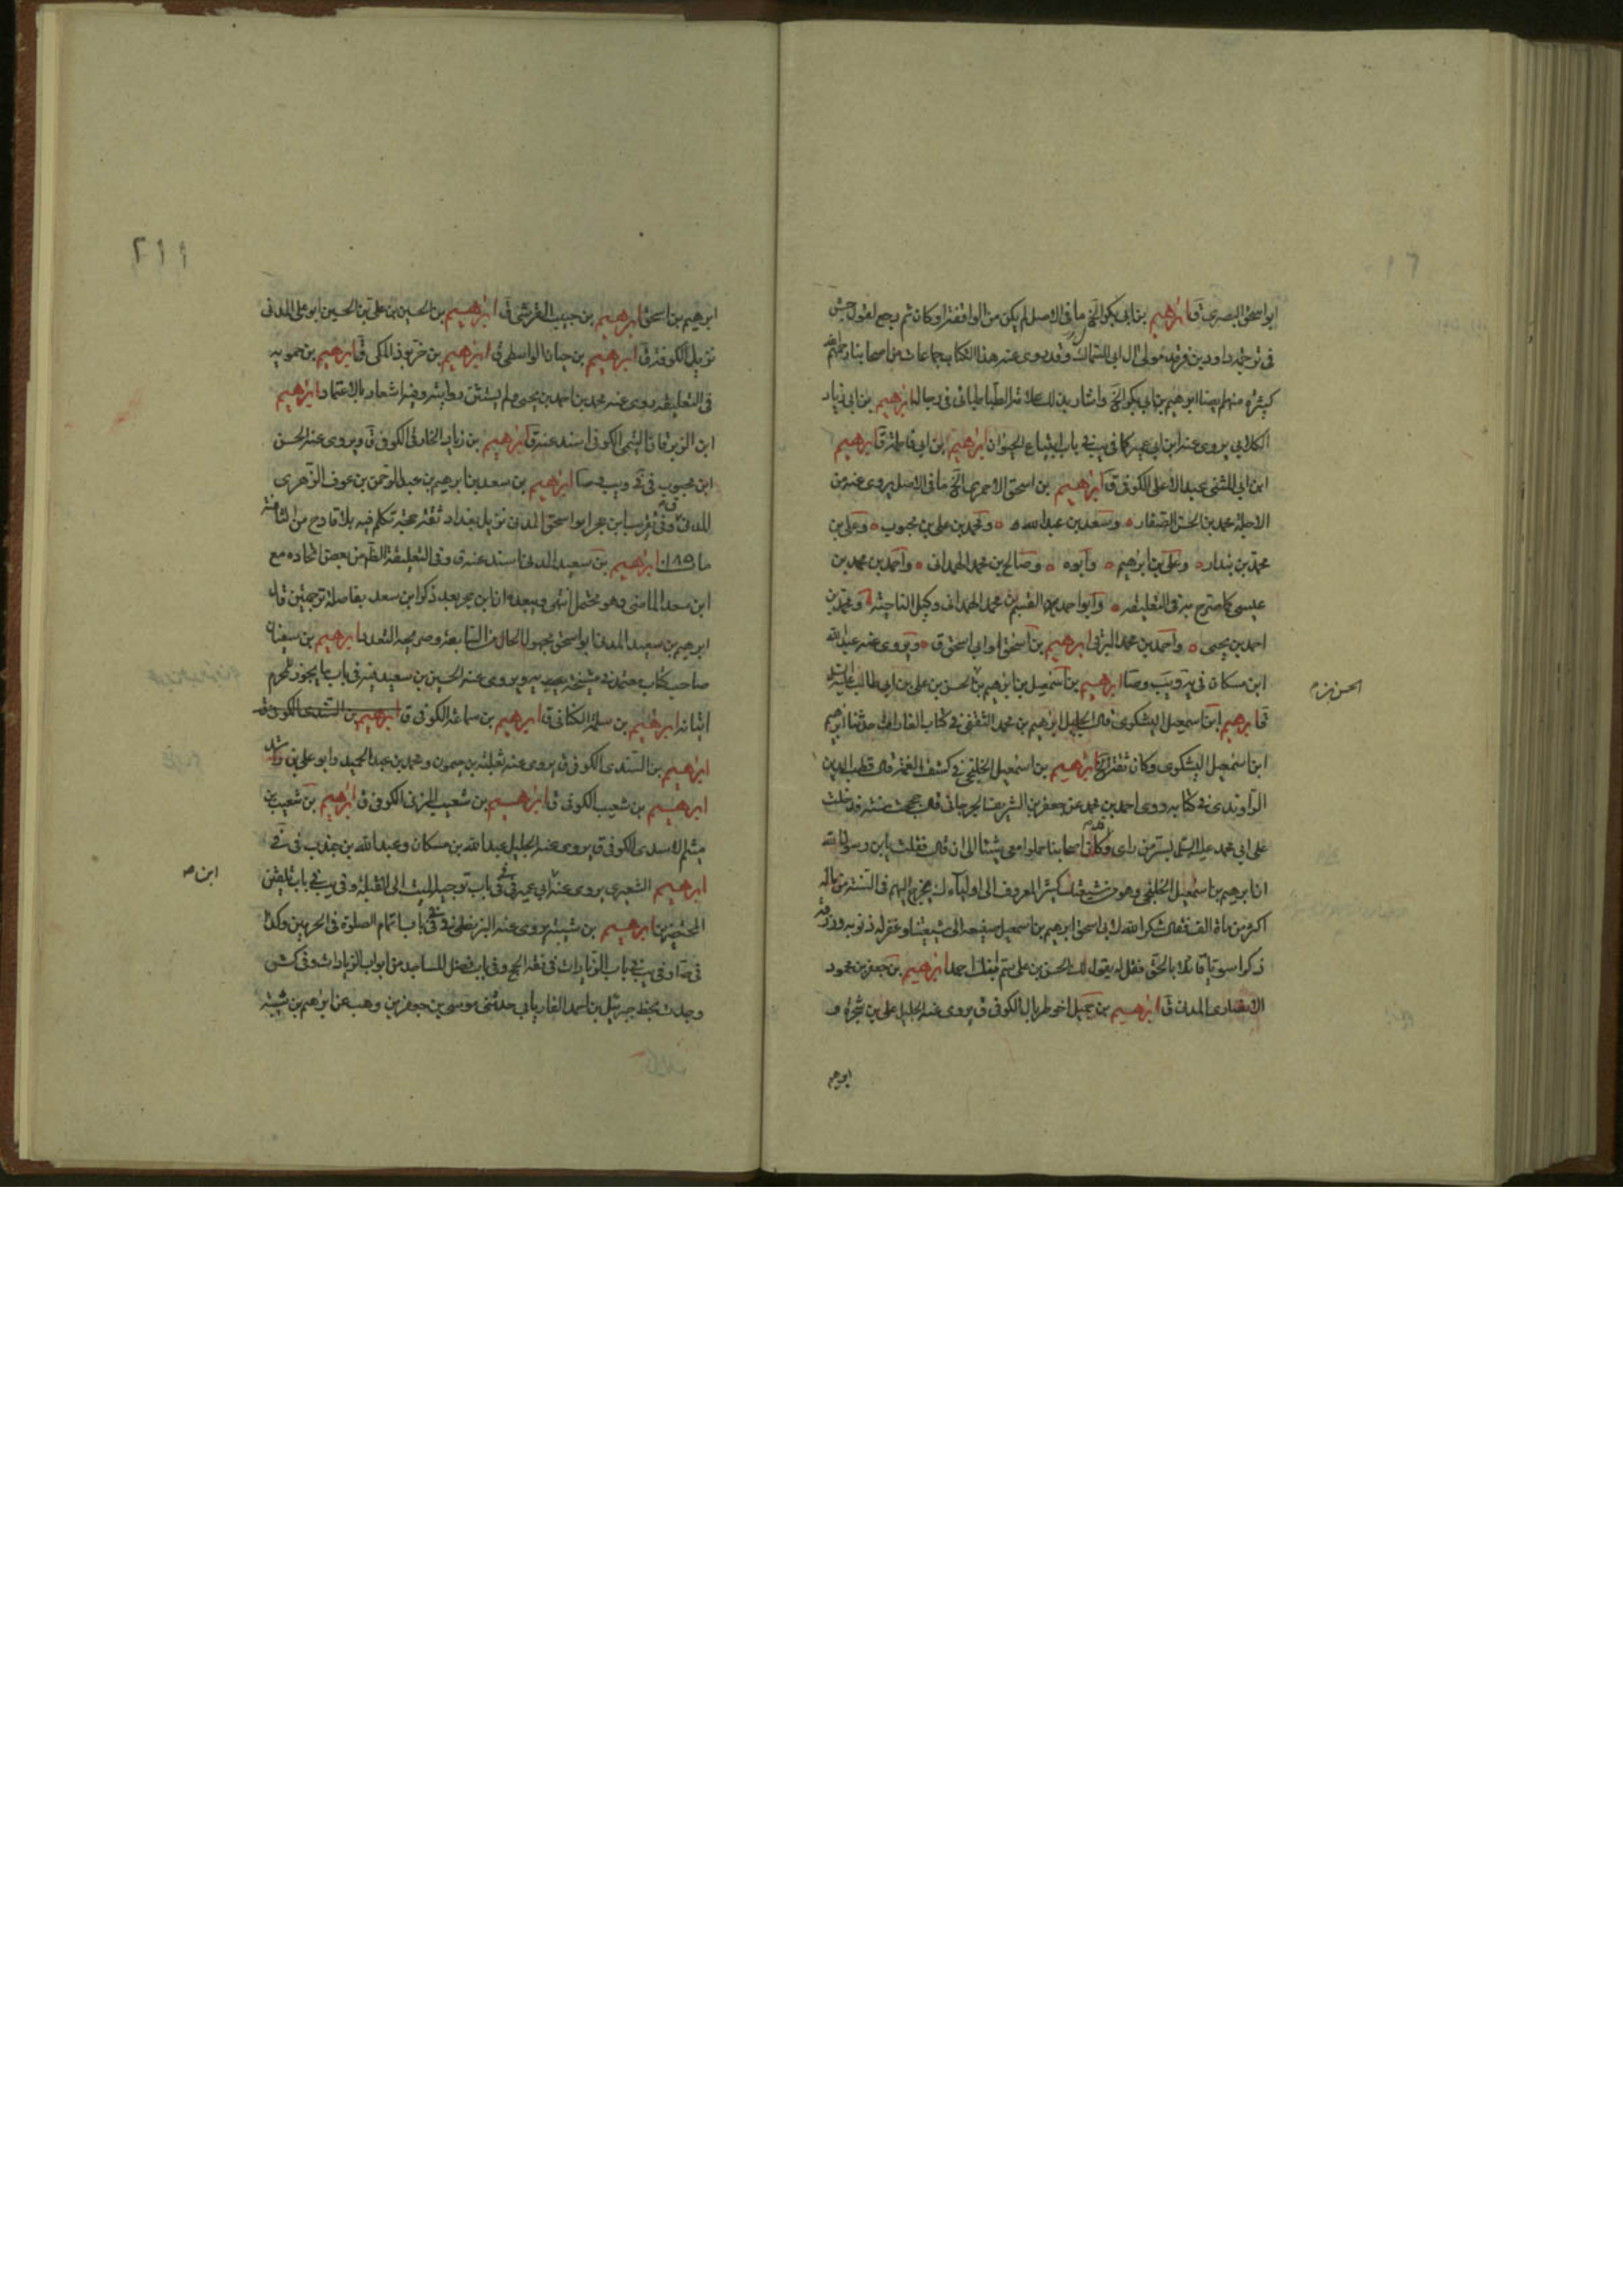 ابو اسحق البصرى ق ابرهيم بن ابى بكر الخ ما فى الاصل لم يكن من الواقفة او كان ثم رجع لقول جش
فى ترجمة داود بن فرقد مولى آل ابى السمال وقد روى عنه هذا الكتاب جماعات من اصحابنا رحمهم الله
كثيرة منهم ايضا ابرهيم بن ابى بكر الخ واشار بذلك العلامة الطباطبائى فى رجاله ابرهيم بن ابى زياد
الكلابى يروى عنه ابن ابى عمير كما فى يب فى باب ابتياع الحيوان ابرهيم بن ابى فاطمة ق ابرهيم
ابن ابى المثنى عبد الاعلى الكوفى ق ابرهيم بن اسحق الاحمرى الخ ما فى الاصل يروى عنه من
الاجلة محمد بن الحسن الصفار وسعد بن عبد الله ومحمد بن على بن محبوب وعلى بن
محمد بن بندار وعلى بن ابرهيم وابوه وصالح بن محمد الهمدانى واحمد بن محمد بن
عيسى كما صرح به فى التعليقه وابو احمد القسم بن محمد الهمدانى وكيل الناحية ومحمد بن
احمد بن يحيى واحمد بن محمد البرقى ابرهيم بن اسحق او ابى اسحق ق ويروى عنه عبد الله
ابن مسكان فى يه ويب وصا ابرهيم بن اسمعيل بن ابرهيم بن الحسن بن على بن ابى طالب عليه السلم
الحسن بن م
ق ابرهيم ابن اسمعيل اليشكرى قال الجليل ابرهيم بن محمد الثقفى فى كتاب الغارات حدثنا ابرهيم
ابن اسمعيل اليشكرى وكان ثقة الخ ابرهيم بن اسمعيل الخلنجى فى كشف الغمة قال قطب الدين
الراوندى فى كتابه روى احمد بن محمد عن جعفر بن الشريف الجرجانى قال حججت سنة فدخلت
على ابى محمد عليه السلم بسر من راى وكان اصحابنا حملوا معى شيئا الى ان قال فقلت يابن رسول الله
ان ابرهيم بن اسمعيل الخلنجى وهو من شيعتك كثير المعروف الى اوليائك يخرج اليهم فى السنة من ماله
اكثر من مائة الف فقال شكر الله لابى اسحق ابرهيم بن اسمعيل صنيعه الى شيعتنا وغفر له ذنوبه ورزقه
ذكرا سويا قائلا بالحق فقل له يقول لك الحسن بن على سم ابنك احمد ابرهيم بن جعفر بن محمود
الانصارى المدنى ق ابرهيم بن جميل اخو طربال الكوفى ق يروى عنه الجليل على بن شجرة و
ابرهيم
٢١١
ابرهيم بن اسحق ابرهيم بن حبيب القرشى ق ابرهيم بن الحسين بن على بن الحسين ابو على المدنى
نزيل الكوفة ق ابرهيم بن حيان الواسطى ق ابرهيم بن خربوذ المكى ق ابرهيم بن حمويه
فى التعليقه روى عنه محمد بن احمد بن يحيى ولم يستثن روايته وفيه اشعار بالاعتماد ابرهيم
ابن الزبرقان التيمى الكوفى اسند عنه ق ابرهيم بن زياد الخارفى الكوفى ق ويروى عنه الحسن
ابن محبوب فى فى ويب وصا ابرهيم بن سعد بن ابرهيم بن عبد الرحمن بن عوف الزهرى
المدنى ق وفى تقريب ابن حجر ابو اسحق المدنى نزيل بغداد ثقة حجة تكلم فيه بلا قادح من الثامنة
مات ١٨٥ ابرهيم بن سعيد المدنى اسند عنه ق وفى التعليقة الظاهر من بعض اتحاده مع
ابن سعد الماضى وهو محتمل انتهى ويبعده ان ابن حجر بعد ذكر ابن سعد بفاصلة ترجمتين قال
ابرهيم بن سعيد المدنى ابو اسحق مجهول الحال من السابعة وصريحه التعدد ابرهيم بن سفيان
صاحب كتاب معتمد فى مشيخة يه ويروى عنه الحسين بن سعيد فيه فى باب ما يجوز للمحرم
اتيانه ابرهيم بن سلمة الكنانى ق ابرهيم بن سماعة الكوفى ق ابرهيم بن السندى الكوفى ق
ابرهيم بن السندى الكوفى ق يروى عنه ثعلبة بن ميمون ومحمد بن عبد الحميد وابو على بن راشد
ابرهيم بن شعيب الكوفى ق ابرهيم بن شعيب المزنى الكوفى ق ابرهيم بن شعيب بن
ميثم الاسدى الكوفى ق يروى عنه الجليل عبد الله بن مسكان وعبد الله بن جندب فى فى
ابرهيم الشعيرى يروى عنه ابن ابى عمير فى فى باب توجيه الميت الى القبلة وفى يب فى باب تلقين
ابن صه
المحتضرين ابرهيم بن شيبة يروى عنه البزنطى فى فى باب اتمام الصلوة فى الحرمين وكذا
فى صا وفى يب فى باب الزيادات فى فقه الحج وفى باب فضل المساجد من ابواب الزيادات وفى كش
وجدت بخط جبرئيل بن احمد الفاريابى حدثنى موسى بن جعفر بن وهب عن ابرهيم بن شيبة